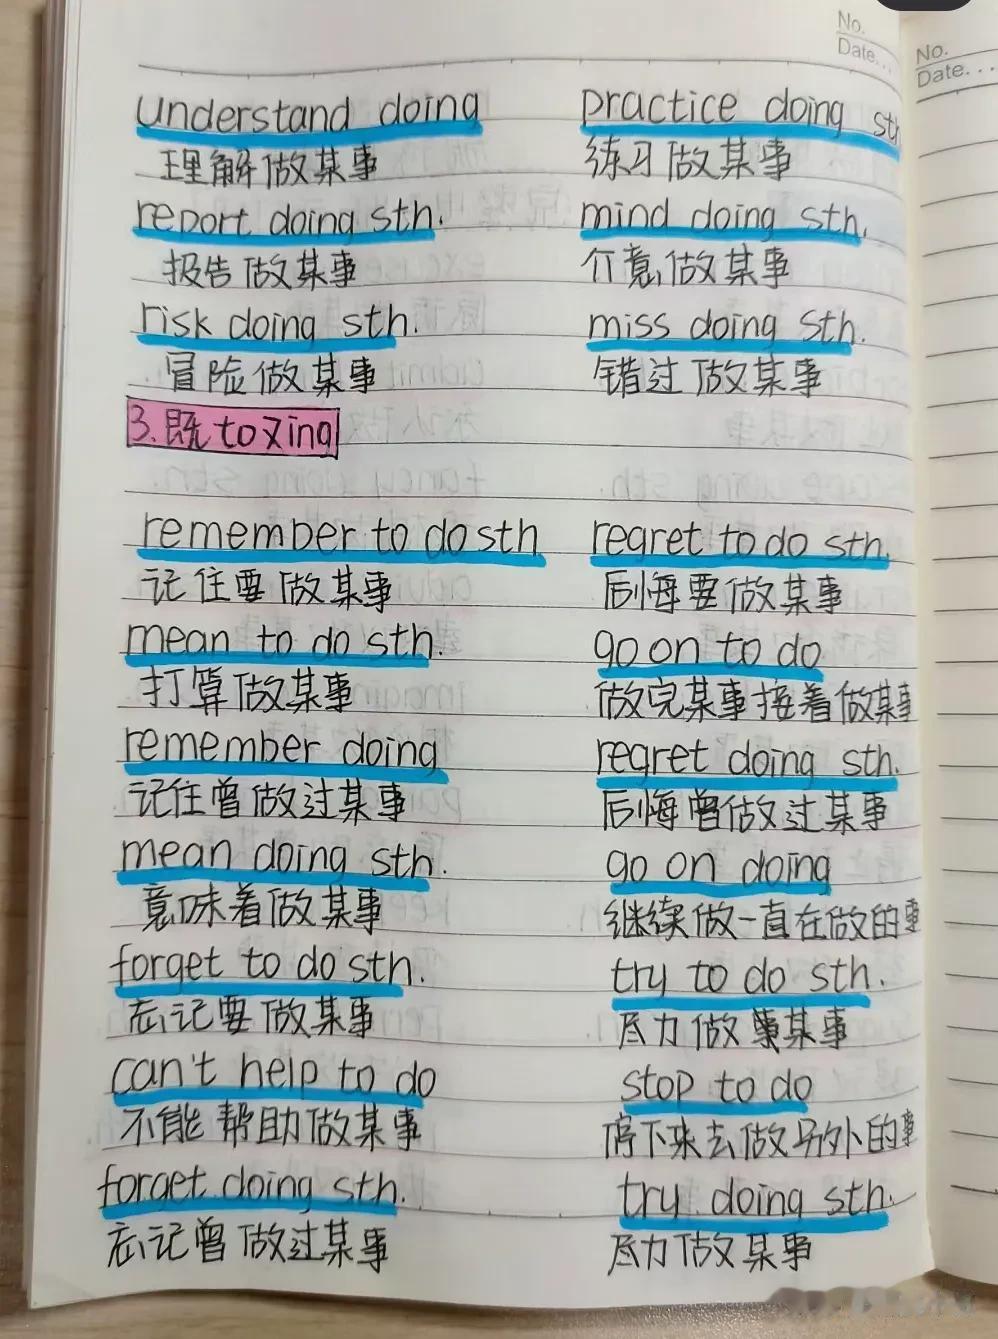 No.
Date...
No.
Date...
understand doing
practice doing sth
理解做某事
练习做某事
report doing sth.
mind doing sth.
报告做某事
介意做某事
risk doing sth.
miss doing sth.
冒险做某事
错过做某事
3.既to又ing
remember to do sth
regret to do sth.
记住要做某事
后悔要做某事
mean to do sth.
go on to do
打算做某事
做完某事接着做某事
remember doing
regret doing sth.
记住曾做过某事
后悔曾做过某事
mean doing sth.
go on doing
意味着做某事
继续做一直在做的事
forget to do sth.
try to do sth.
忘记要做某事
尽力做某事
can't help to do
stop to do
不能帮助做某事
停下来去做另外的事
forget doing sth.
try doing sth.
忘记曾做过某事
尽力做某事